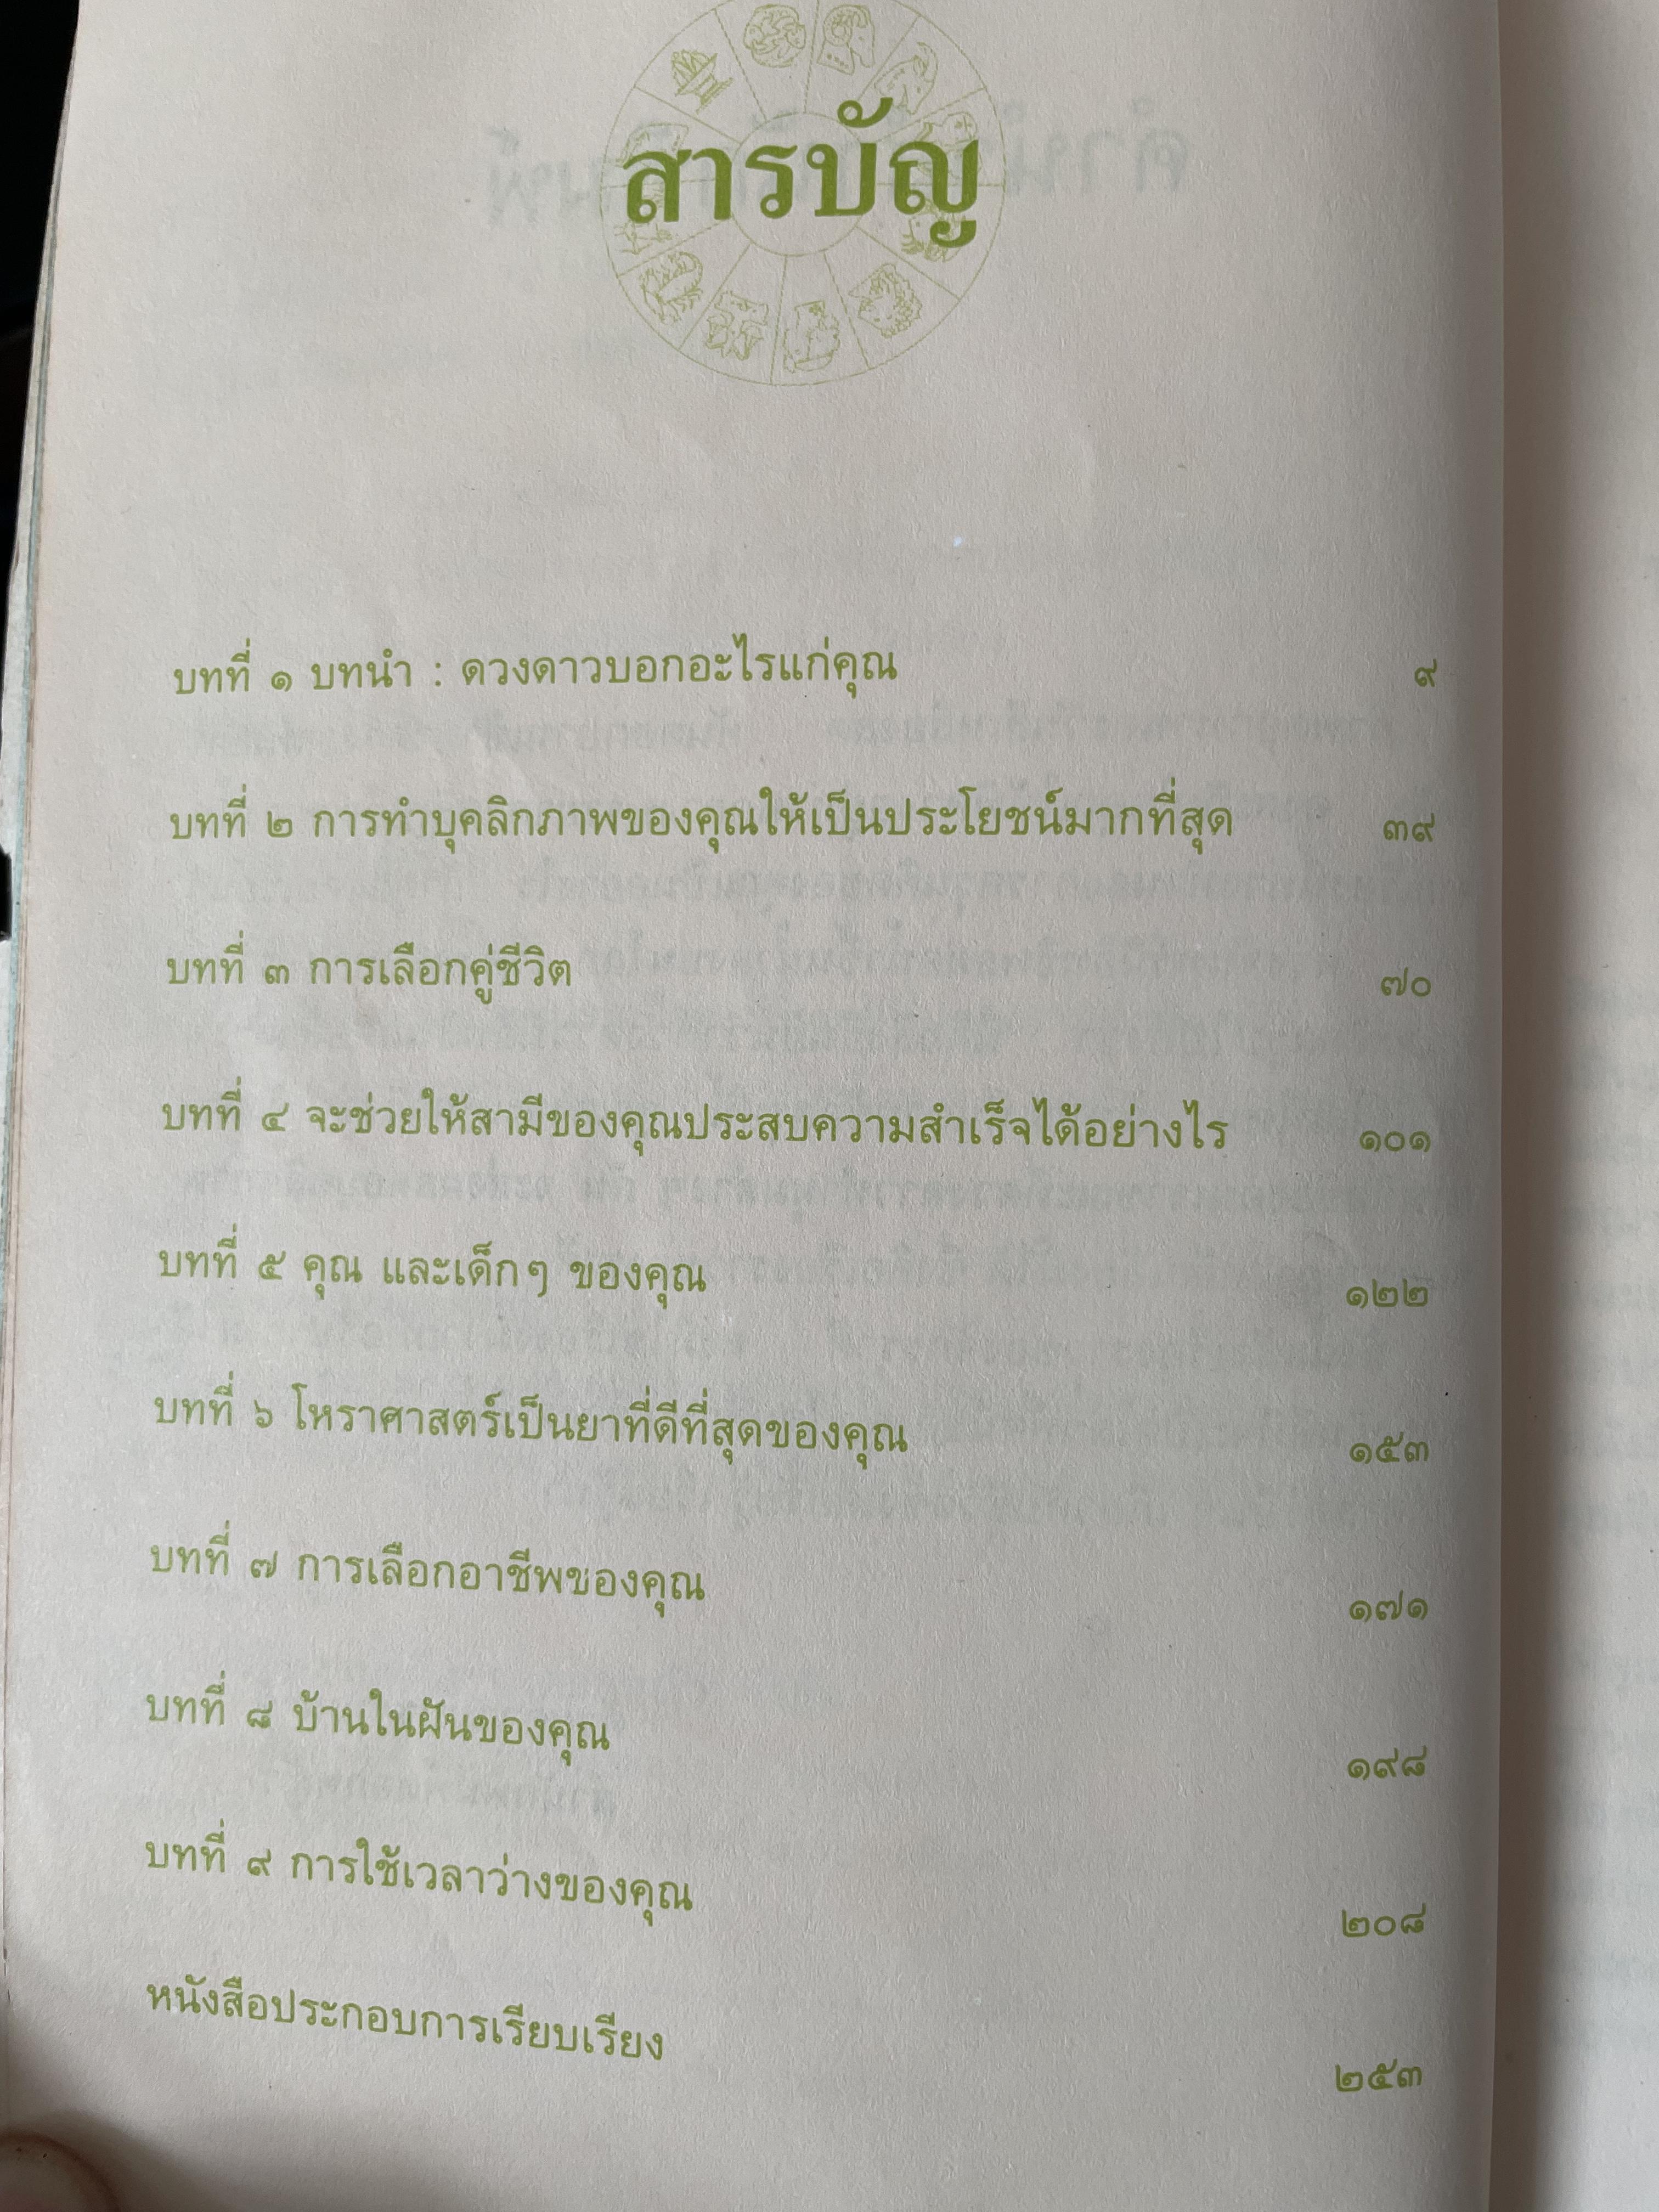 สารบัญ
บทที่ ๑ บทนำ : ดวงดาวบอกอะไรแก่คุณ ๙
บทที่ ๒ การทำบุคลิกภาพของคุณให้เป็นประโยชน์มากที่สุด ๓๙
บทที่ ๓ การเลือกคู่ชีวิต ๗๐
บทที่ ๔ จะช่วยให้สามีของคุณประสบความสำเร็จได้อย่างไร ๑๐๑
บทที่ ๕ คุณ และเด็กๆ ของคุณ ๑๒๒
บทที่ ๖ โหราศาสตร์เป็นยาที่ดีที่สุดของคุณ ๑๕๓
บทที่ ๗ การเลือกอาชีพของคุณ ๑๗๑
บทที่ ๘ บ้านในฝันของคุณ ๑๙๘
บทที่ ๙ การใช้เวลาว่างของคุณ ๒๐๘
หนังสือประกอบการเรียบเรียง ๒๕๓